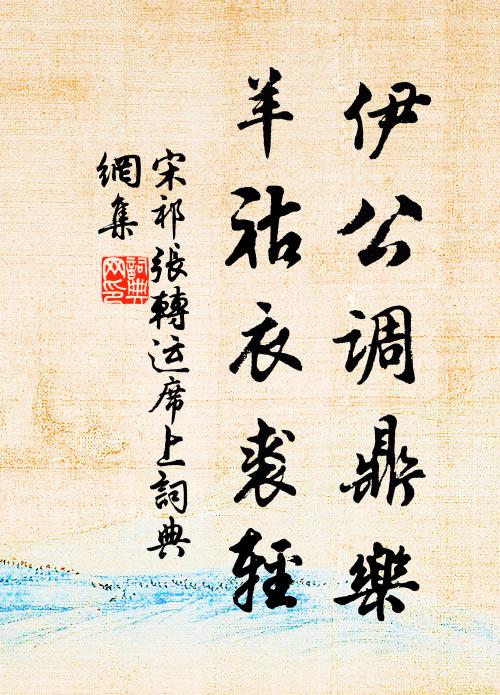 伊公调鼎樂
羊祜衣裘輕
宋祁張轉运席上詞典
網集
詞典網印